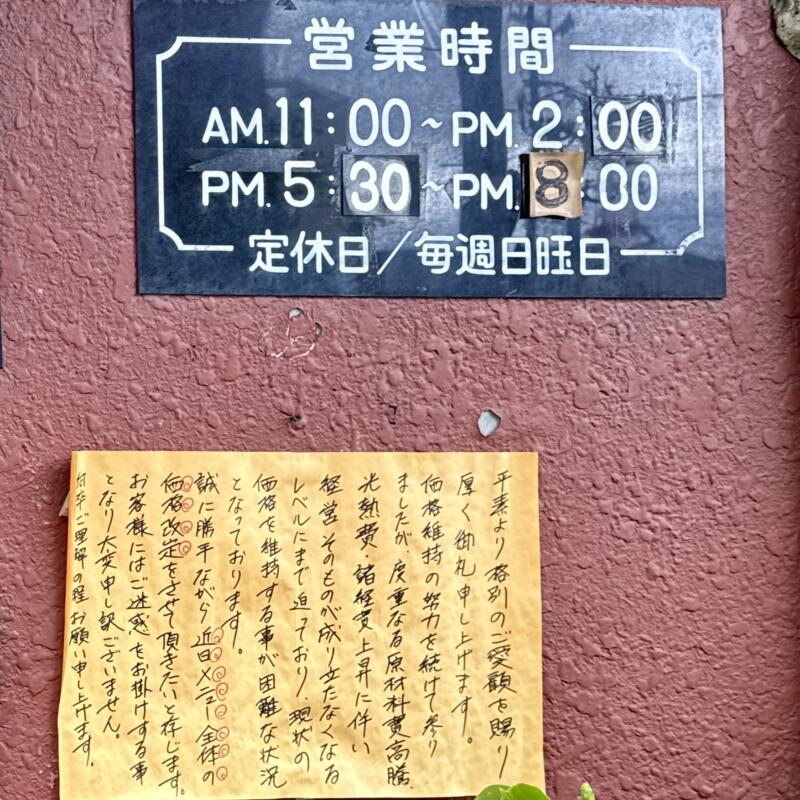 営業時間
AM.11:00~PM.2:00
PM.5:30~PM.8:00
定休日/毎週日曜日
平素より格別のご愛顧を賜り
厚く御礼申し上げます。
価格維持の努力を続けて参り
ましたが、度重なる原材料費高騰、
光熱費、諸経費上昇に伴い
経営そのものが成り立たなくなる
レベルにまで迫っており、現状の
価格を維持する事が困難な状況
となっております。
誠に勝手ながら近日メニュー全体の
価格改定をさせて頂きたいと存じます。
お客様にはご迷惑をお掛けする事
となり大変申し訳ございません。
何卒ご理解の程お願い申し上げます。